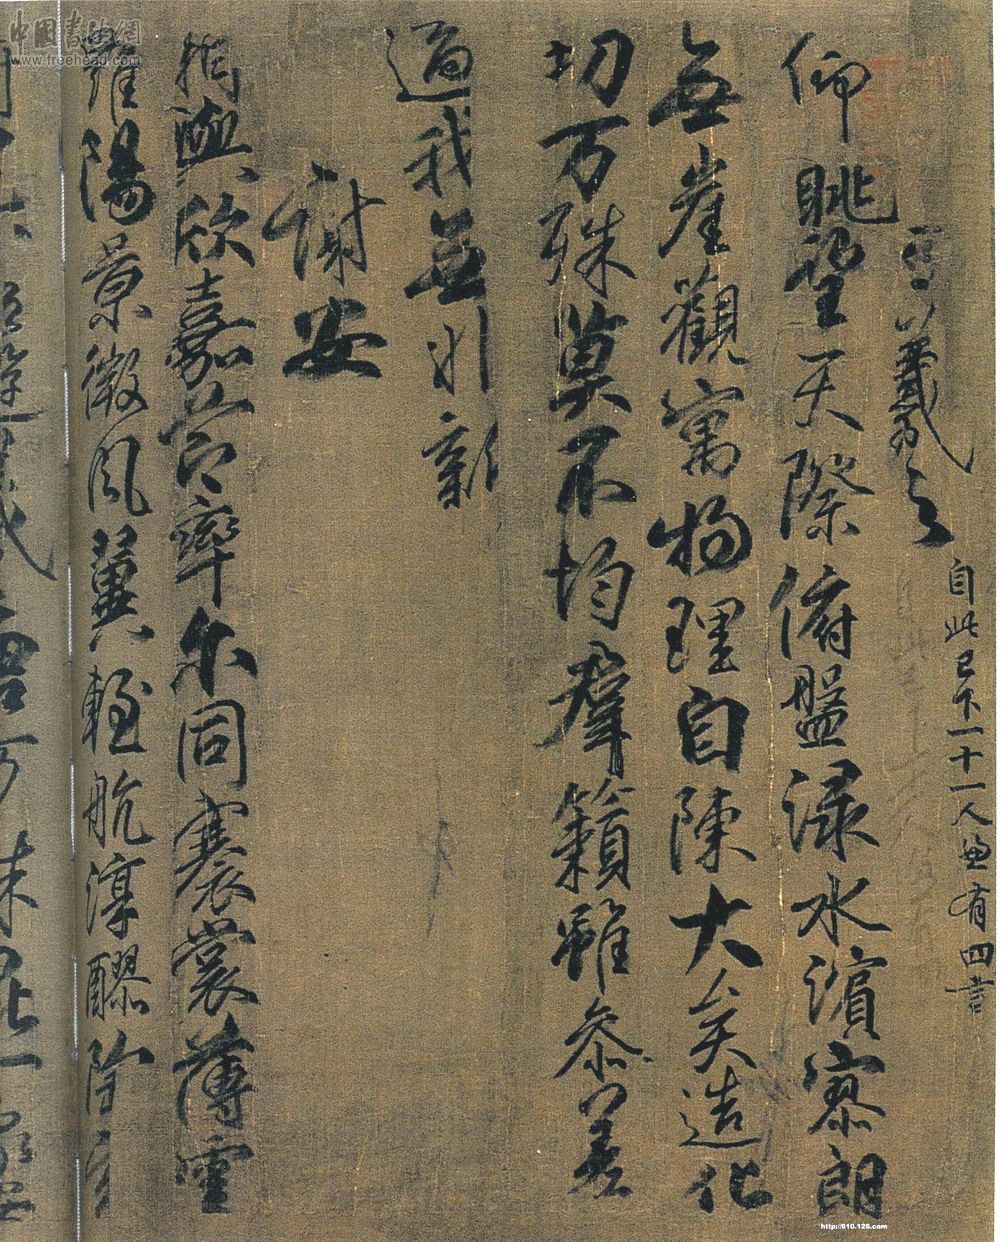 王羲之
自此已下一十一人有四言
仰眺望天際俯盤淥水濱寥朗
無崖觀寓物理自陳大矣造化
切万殊莫不均羣籟雖參差
適我無非新
謝安
相與欣嘉節率尔同褰裳薄雲
羅陽景微風翼輕航淳醪陶
中国书法網
www.freehead.com
http://610.126.com